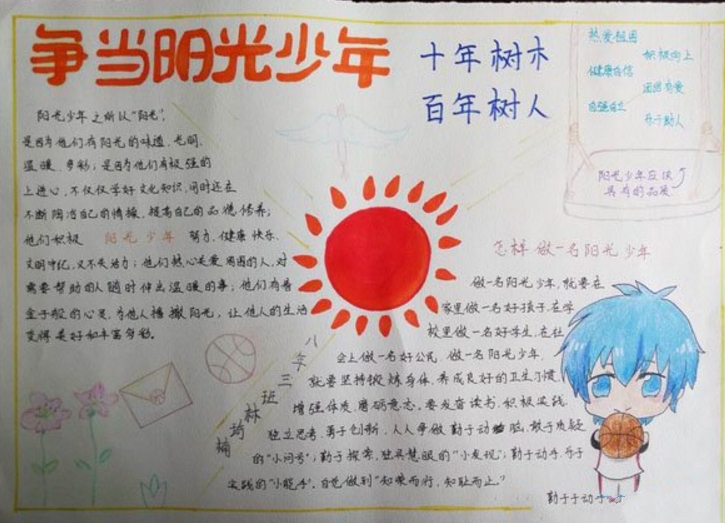 争当阳光少年
十年树木
百年树人
热爱祖国
积极向上
健康自信
团结友爱
自强自立
乐于助人
阳光少年应该
具有的品质
阳光少年之所以“阳光”,
是因为他们有阳光的味道,光明,
温暖、多彩;是因为他们有极强的
上进心,不仅仅学好文化知识,同时还在
不断陶冶自己的情操,提高自己的品德修养;
他们积极 阳光少年 努力、健康快乐、
文明守纪,又不失活力;他们热心关爱周围的人,对
需要帮助的人随时伸出温暖的手;他们有善
金子般的心灵,为他人播撒阳光,让他人的生活
变得美好和丰富多彩。
怎样做一名阳光少年
做一名阳光少年,就要在
家里做一名好孩子,在学
校里做一名好学生,在社
会上做一名好公民,做一名阳光少年,
就要坚持锻炼身体,养成良好的卫生习惯,
增强体质,磨砺意志,要发奋读书,积极实践,
独立思考,勇于创新,人人争做勤于动脑,敢于质疑
的“小问号”;勤于探索,独具慧眼的“小发现”;勤于动手,乐于
实践的“小能手”,自觉做到“知荣而行,知耻而止。”
勤于于动手
八年三班林琦楠